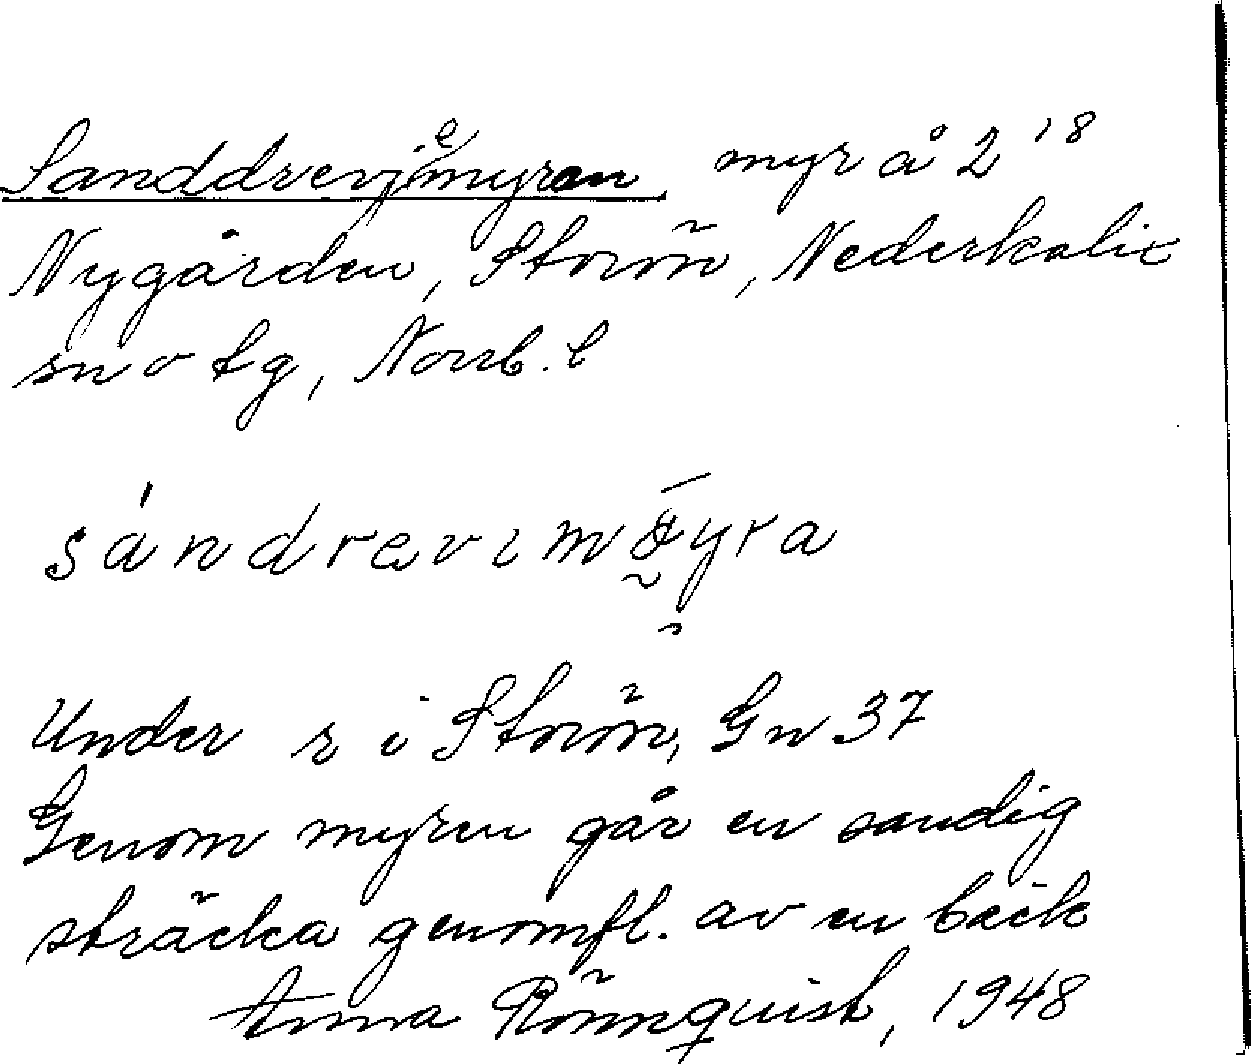 Sanddrevjemyren, myr å 2¹⁸
Nygården, Storön, Nederkalix
sn o tg, Norrb. l
Under r i Storön, Gn 37
Genom myren går en sandig
sträcka genomfl. av en bäck
Anna Rönnquist, 1948